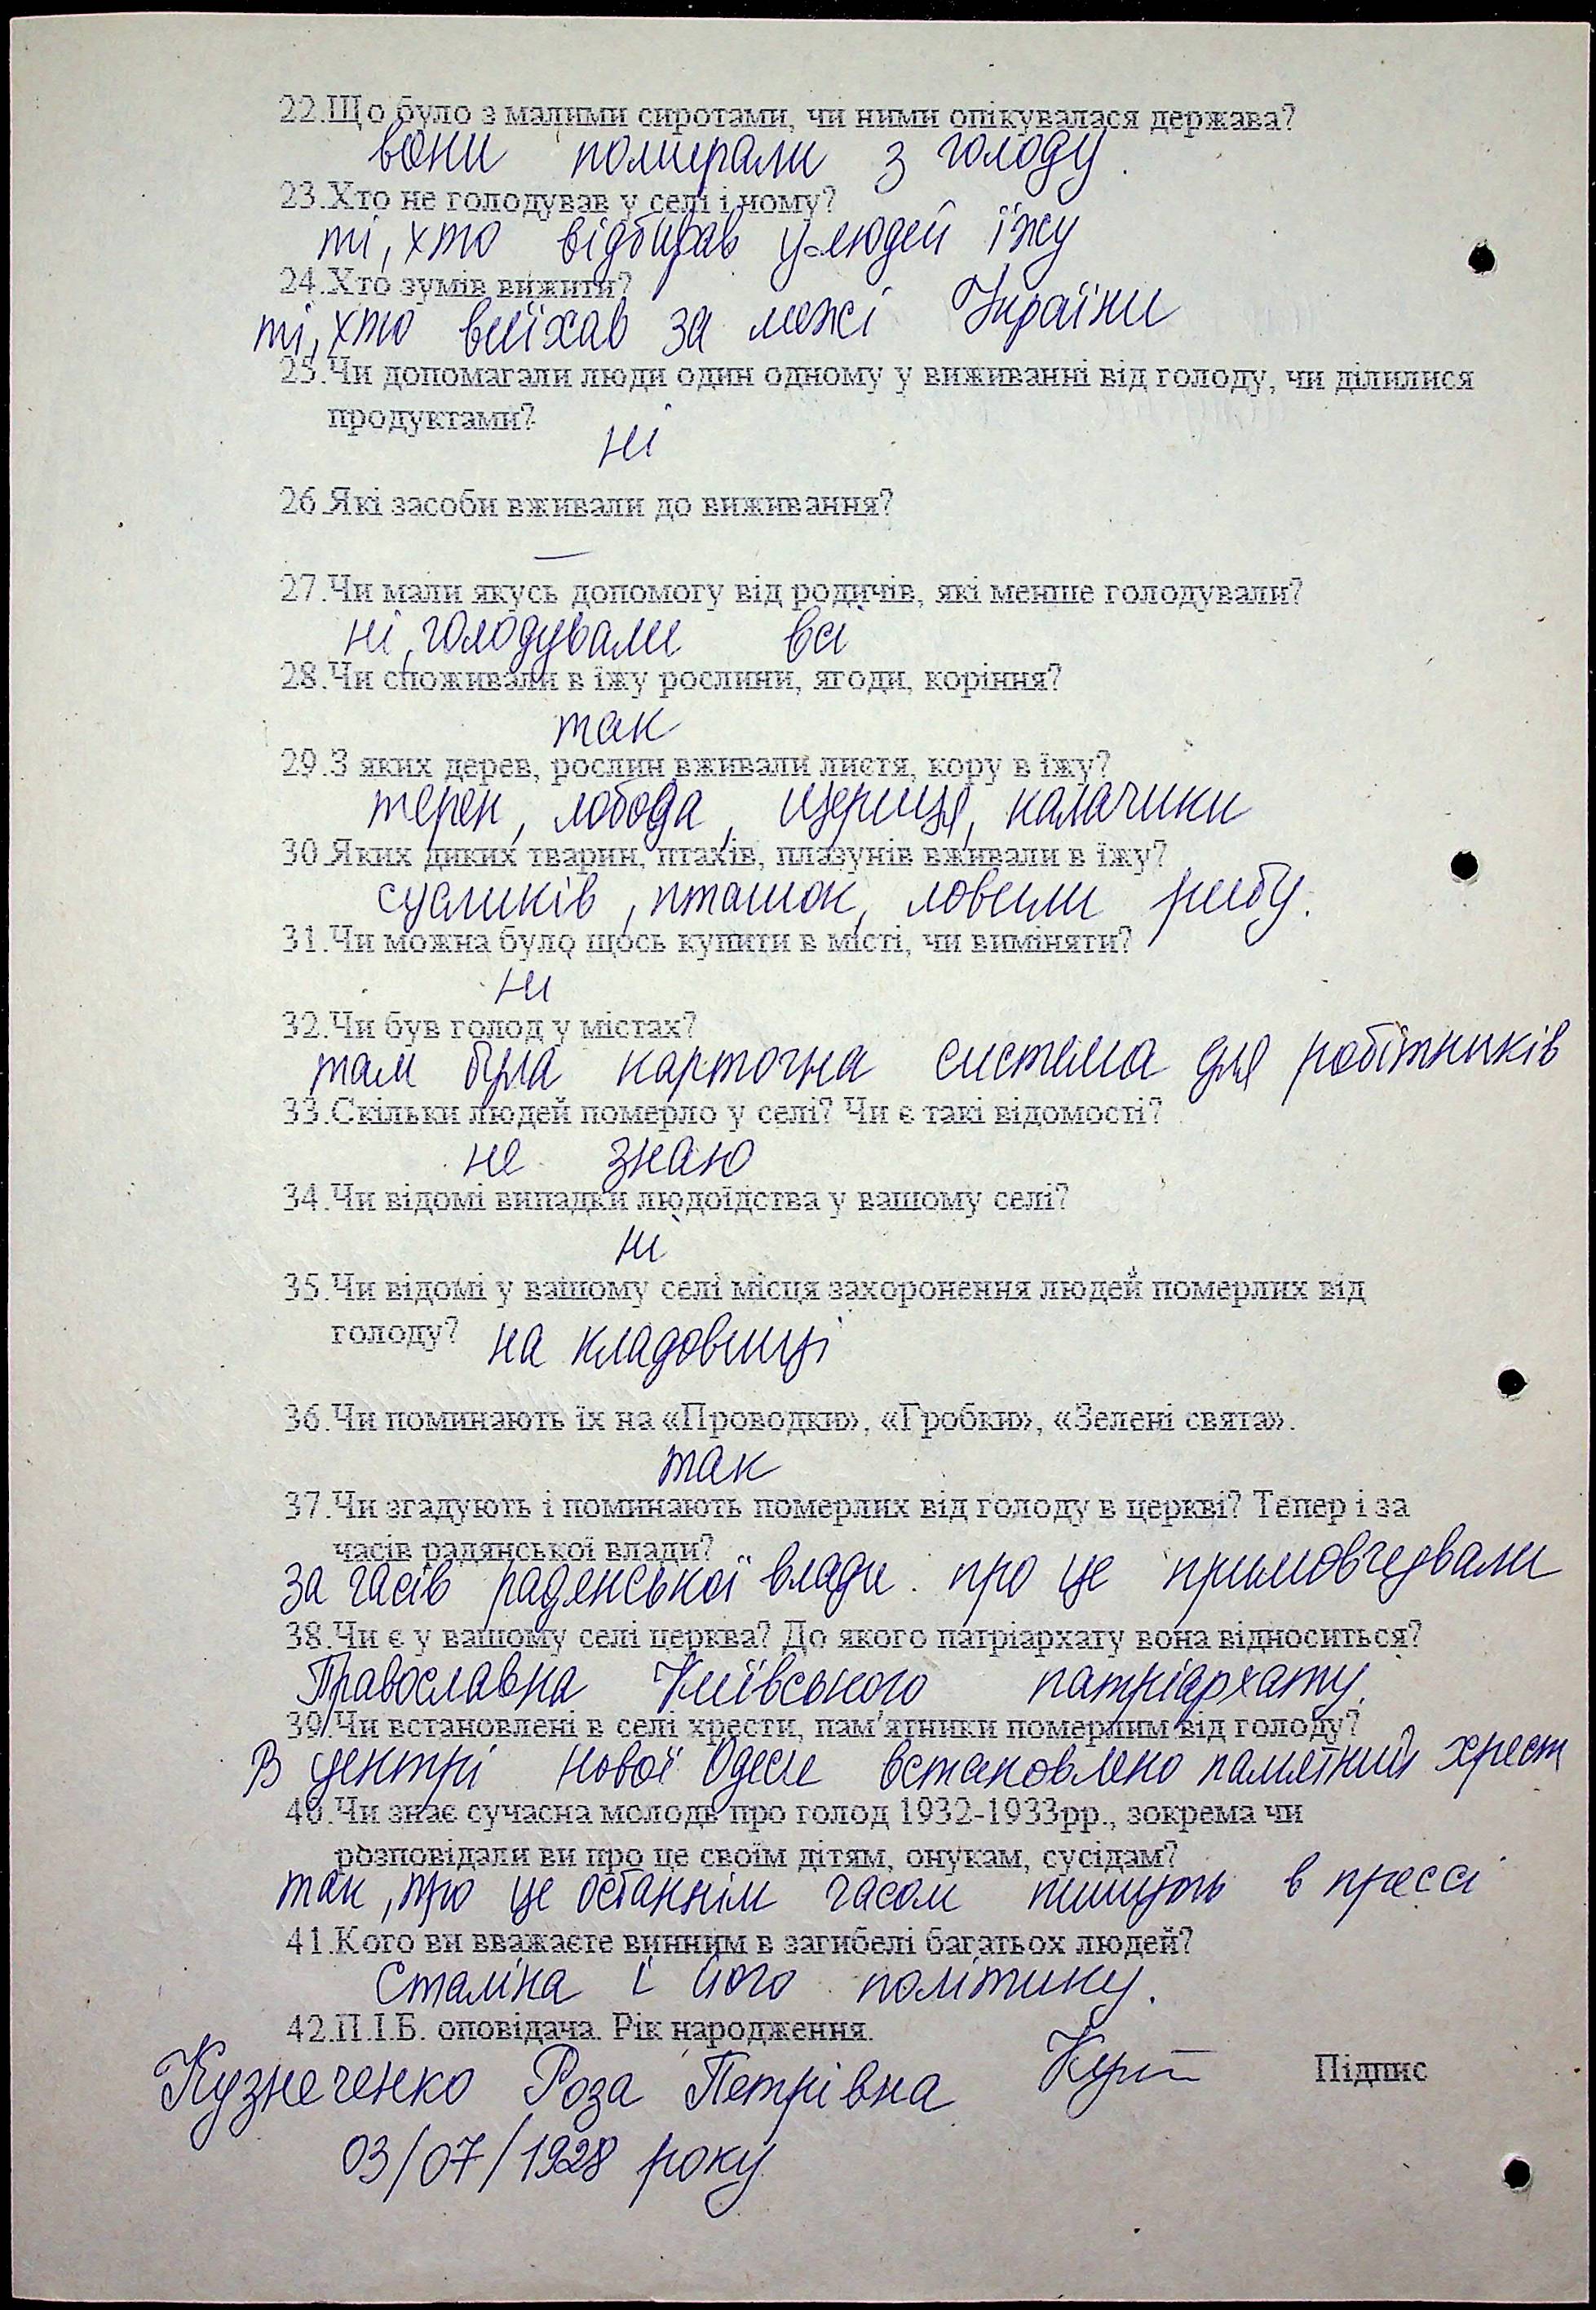 22.Що було з малими сиротами, чи ними опікувалася держава?
вони помирали з голоду.
23.Хто не голодував у селі і чому?
ті, хто відбирав у людей їжу
24.Хто зумів вижити?
ті, хто виїхав за межі України
25.Чи допомагали люди один одному у виживанні від голоду, чи ділилися
продуктами?
ні
26.Які засоби вживали до виживання?
—
27.Чи мали якусь допомогу від родичів, які менше голодували?
ні, голодували всі
28.Чи споживали в їжу рослини, ягоди, коріння?
так
29.З яких дерев, рослин вживали листя, кору в їжу?
терен, лобода, щериця, калачики
30.Яких диких тварин, птахів, плазунів вживали в їжу?
сусликів, пташок, ловили рибу.
31.Чи можна було щось купити в місті, чи виміняти?
ні
32.Чи був голод у містах?
там була карточна система для робітників
33.Скільки людей померло у селі? Чи є такі відомості?
не знаю
34.Чи відомі випадки людоїдства у вашому селі?
ні
35.Чи відомі у вашому селі місця захоронення людей померлих від
голоду?
на кладовищі
36.Чи поминають їх на «Проводки», «Гробки», «Зелені свята».
так
37.Чи згадують і поминають померлих від голоду в церкві? Тепер і за
часів радянської влади?
за часів радянської влади про це примовчували
38.Чи є у вашому селі церква? До якого патріархату вона відноситься?
Православна Київського патріархату.
39.Чи встановлені в селі хрести, пам'ятники померлим від голоду?
В центрі нової Одеси встановлено памятний хрест
40.Чи знає сучасна молодь про голод 1932-1933рр., зокрема чи
розповідали ви про це своїм дітям, онукам, сусідам?
так, про це останнім часом пишуть в прессі
41.Кого ви вважаєте винним в загибелі багатьох людей?
Сталіна і його політику.
42.П.І.Б. оповідача. Рік народження.
Кузнеченко Роза Петрівна
Підпис
03/07/1928 року